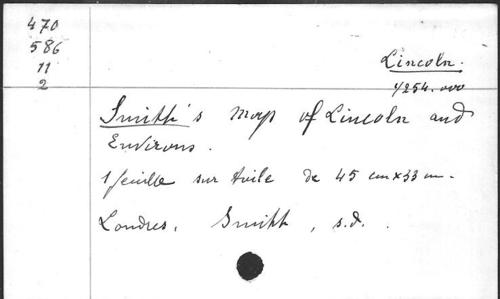 470
586
11
2
Lincoln.
4254.000
Smith's map of Lincoln and
Environs.
1 feuille sur toile de 45 cm x 33 cm.
Londres, Smith, s.d.